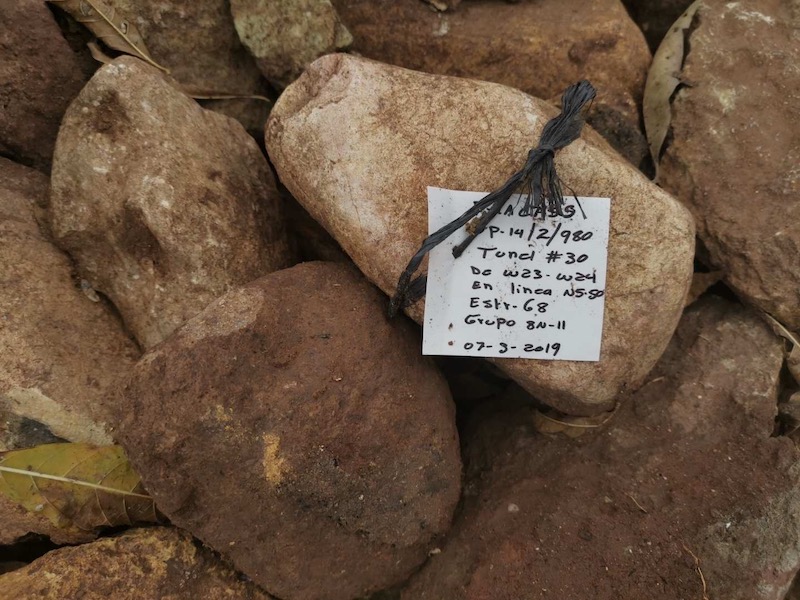 P-14/2/980
Tunel #30
De W23-W24
En linea N5.50
Estr-68
Grupo 8N-11
07-3-2019